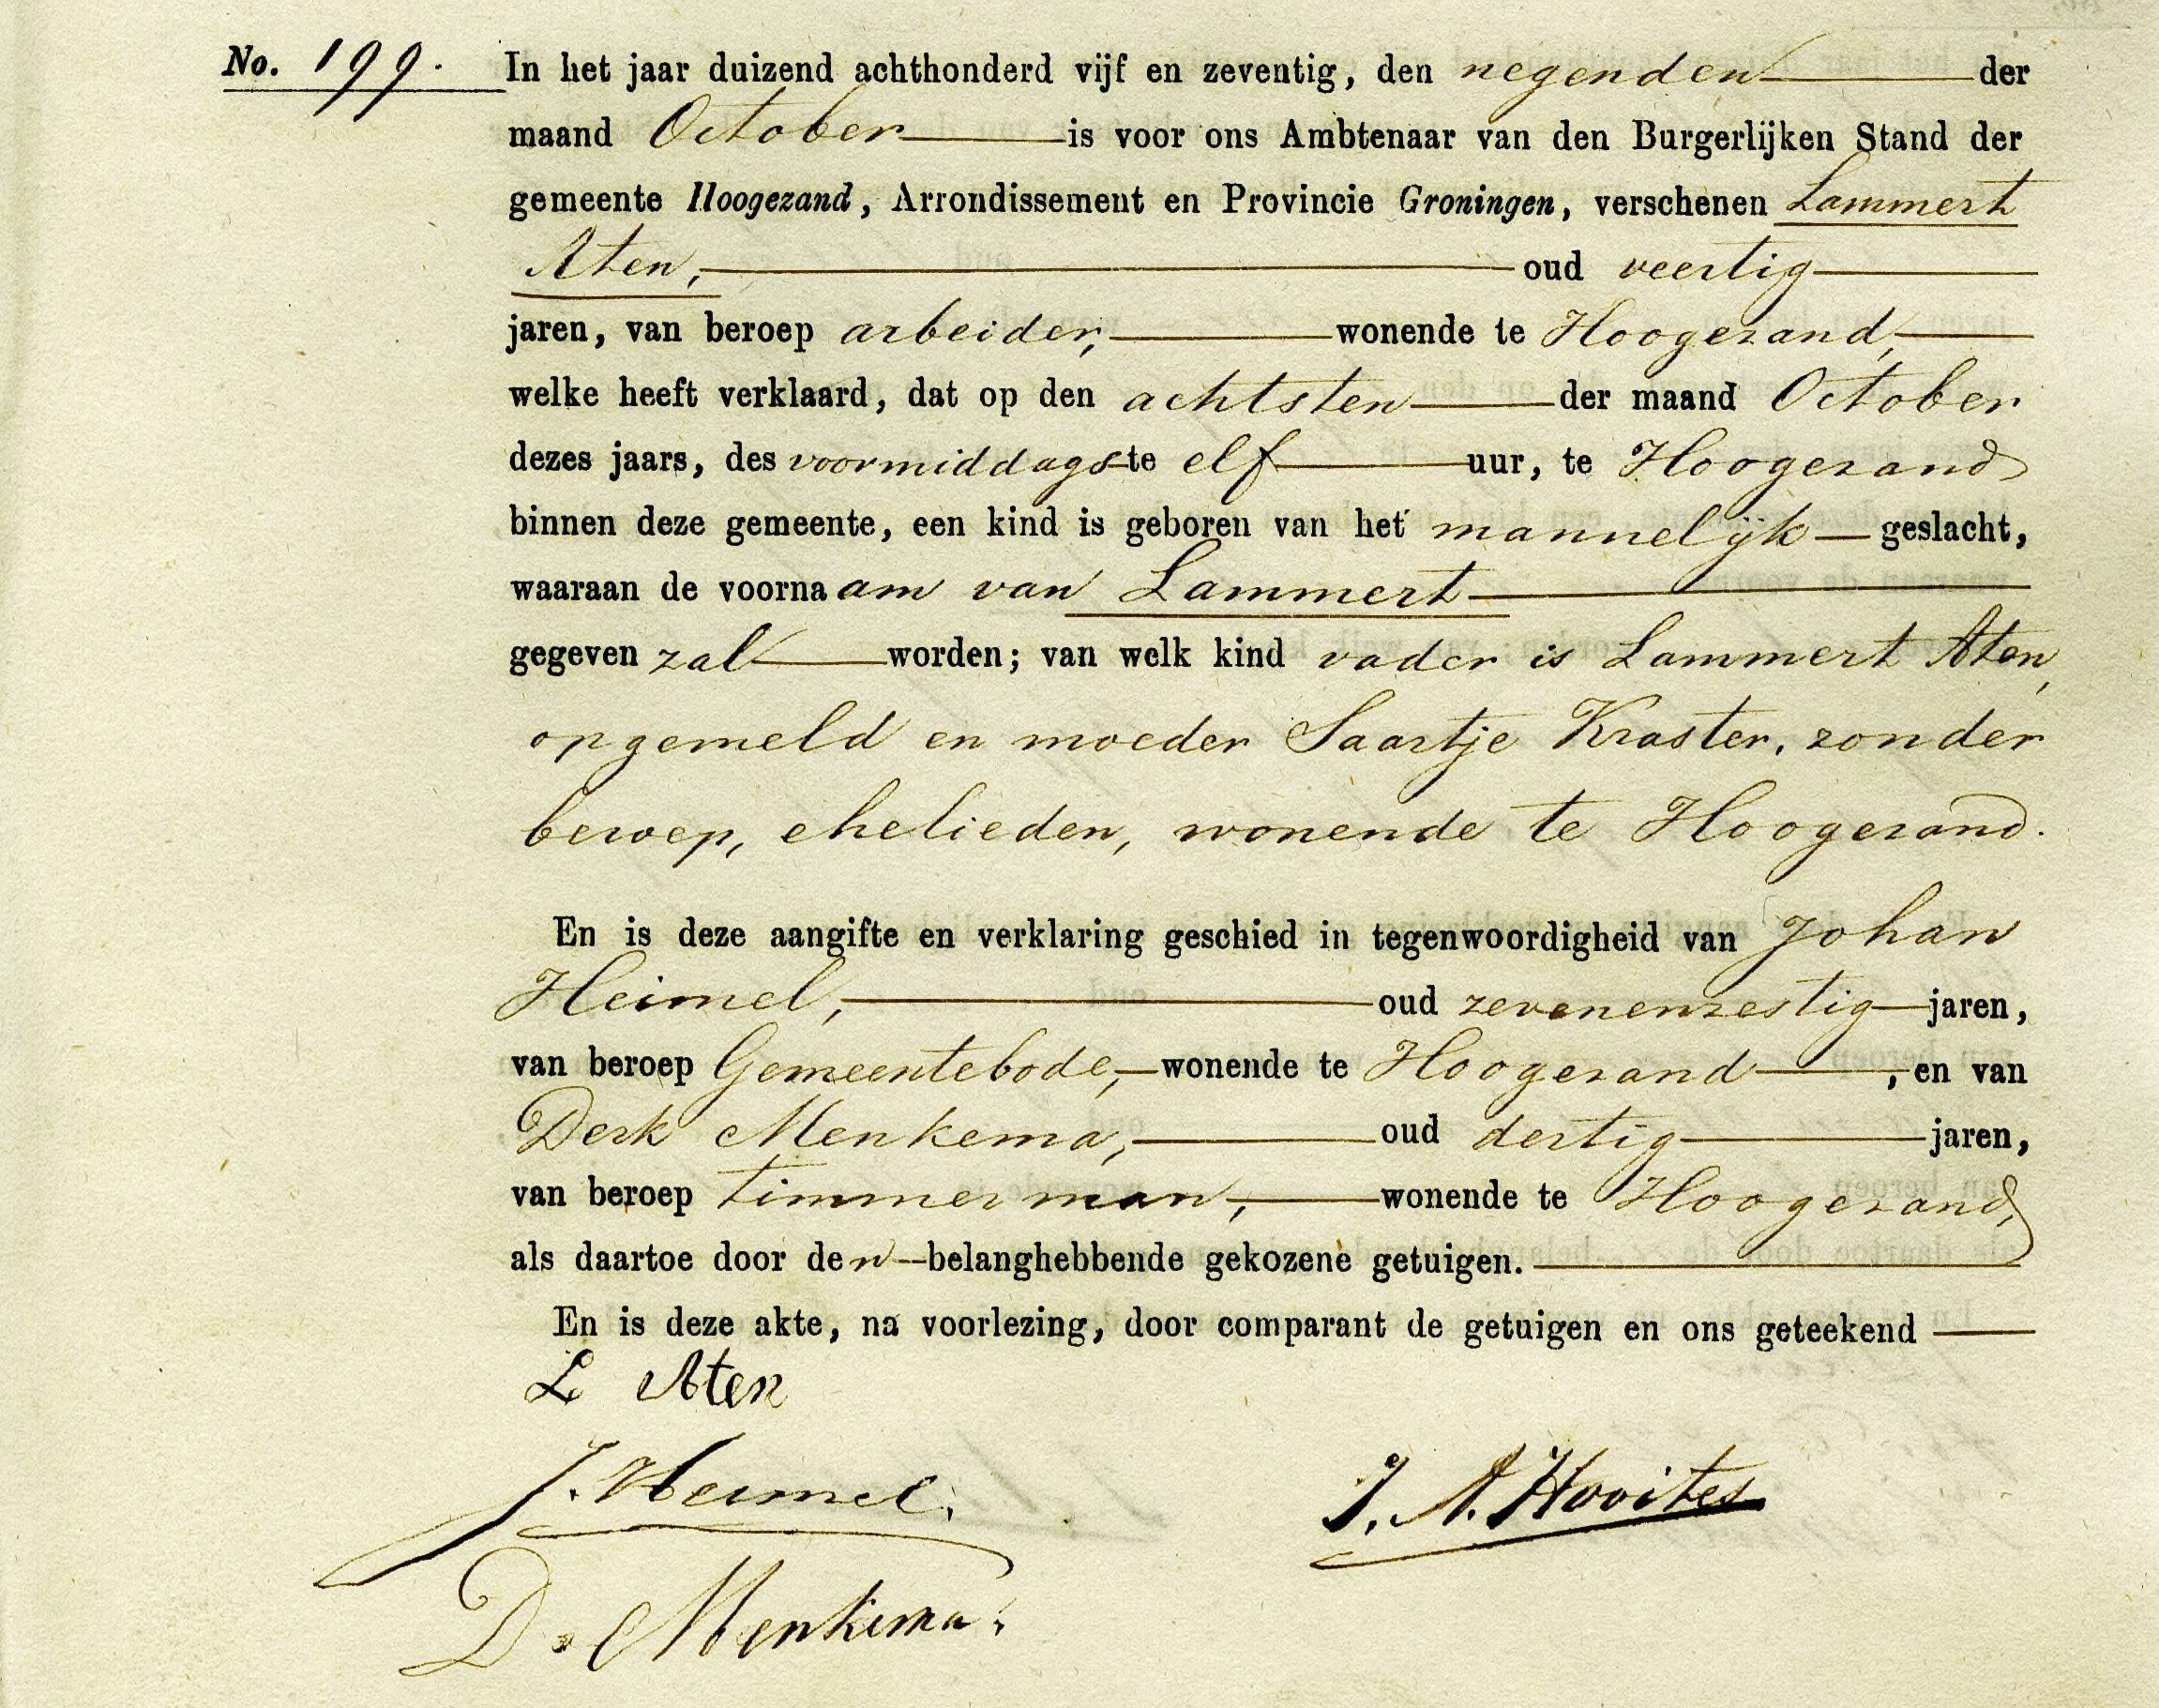 No. 199. In het jaar duizend achthonderd vijf en zeventig, den negenden der
maand October is voor ons Ambtenaar van den Burgerlijken Stand der
gemeente Hoogezand, Arrondissement en Provincie Groningen, verschenen Lammert
Aten, oud veertig
jaren, van beroep arbeider, wonende te Hoogezand,
welke heeft verklaard, dat op den achtsten der maand October
dezes jaars, des voormiddags te elf uur, te Hoogezand
binnen deze gemeente, een kind is geboren van het mannelijk geslacht,
waaraan de voornaam van Lammert
gegeven zal worden; van welk kind vader is Lammert Aten,
opgemeld en moeder Saartje Kraster, zonder
beroep, ehelieden, wonende te Hoogezand.
En is deze aangifte en verklaring geschied in tegenwoordigheid van Johan
Heimel, oud zevenenzestig jaren,
van beroep Gemeentebode, wonende te Hoogezand, en van
Derk Menkema, oud dertig jaren,
van beroep timmerman, wonende te Hoogezand,
als daartoe door den belanghebbende gekozene getuigen.
En is deze akte, na voorlezing, door comparant de getuigen en ons geteekend
L Aten
J. Heimel.
J. A. Hooites
D. Menkema.